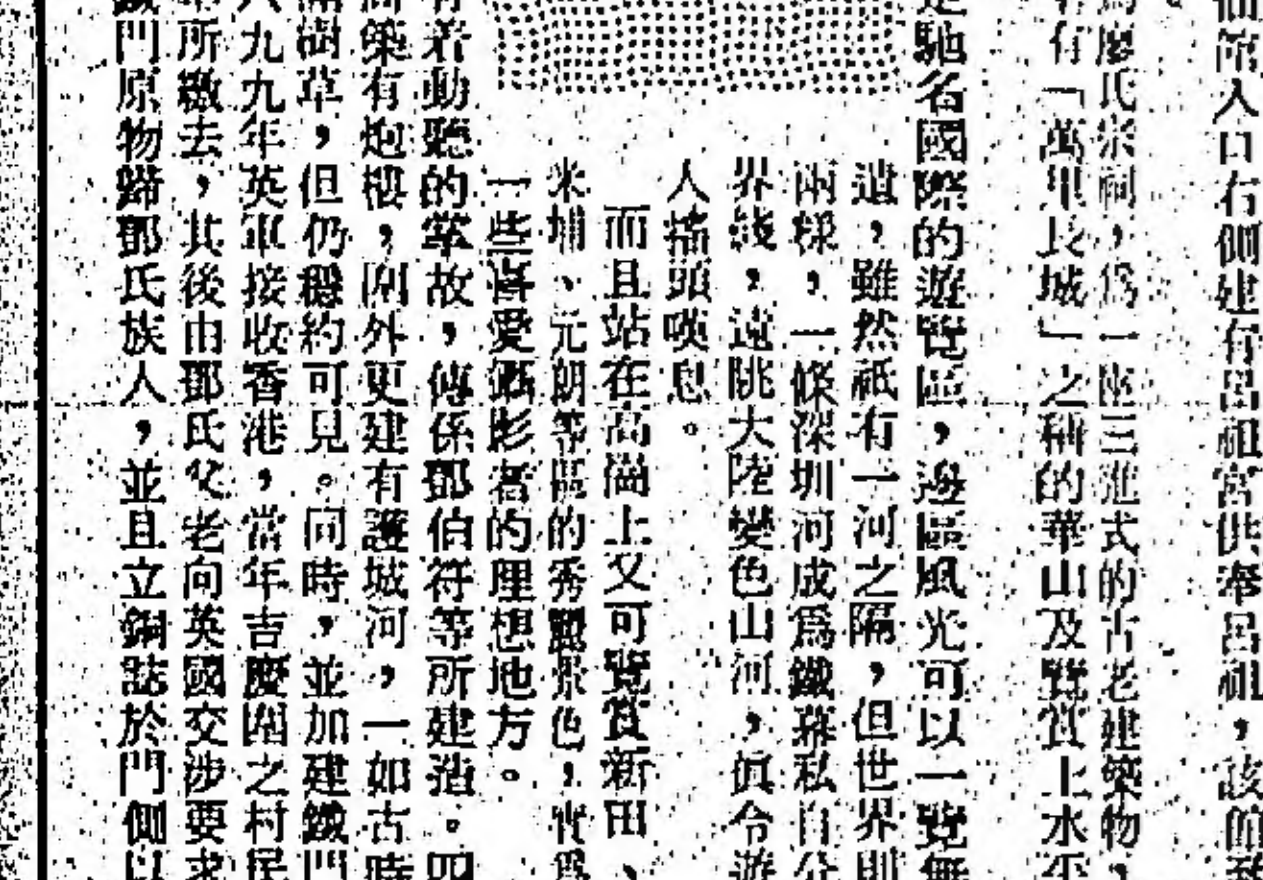 仙館入口右側建有呂祖宮供奉呂祖，該館
為廖氏宗祠，爲一座三進式的古老建築物，
有「萬里長城」之稱的華山及覽賞上水
是馳名國際的遊覽區，邊區風光可以一覽無
遺，雖然祇有一河之隔，但世界則
兩樣，一條深圳河成爲鐵幕私自分
界綫，遠眺大陸變色山河，眞令遊
人搖頭嘆息。
而且站在高崗上又可覽賞新田、
米埔、元朗等區的秀麗景色，實爲
一些喜愛攝影者的理想地方。
有着動聽的掌故，傳係鄧伯符等所建造。四
築有炮樓，圍外更建有護城河，一如古時
樹草，但仍穩約可見。同時，並加建鐵門
八九九年英軍接收香港，當年吉慶圍之村民
所繳去，其後由鄧氏父老向英國交涉要求
鐵門原物歸鄧氏族人，並且立銅誌於門側以